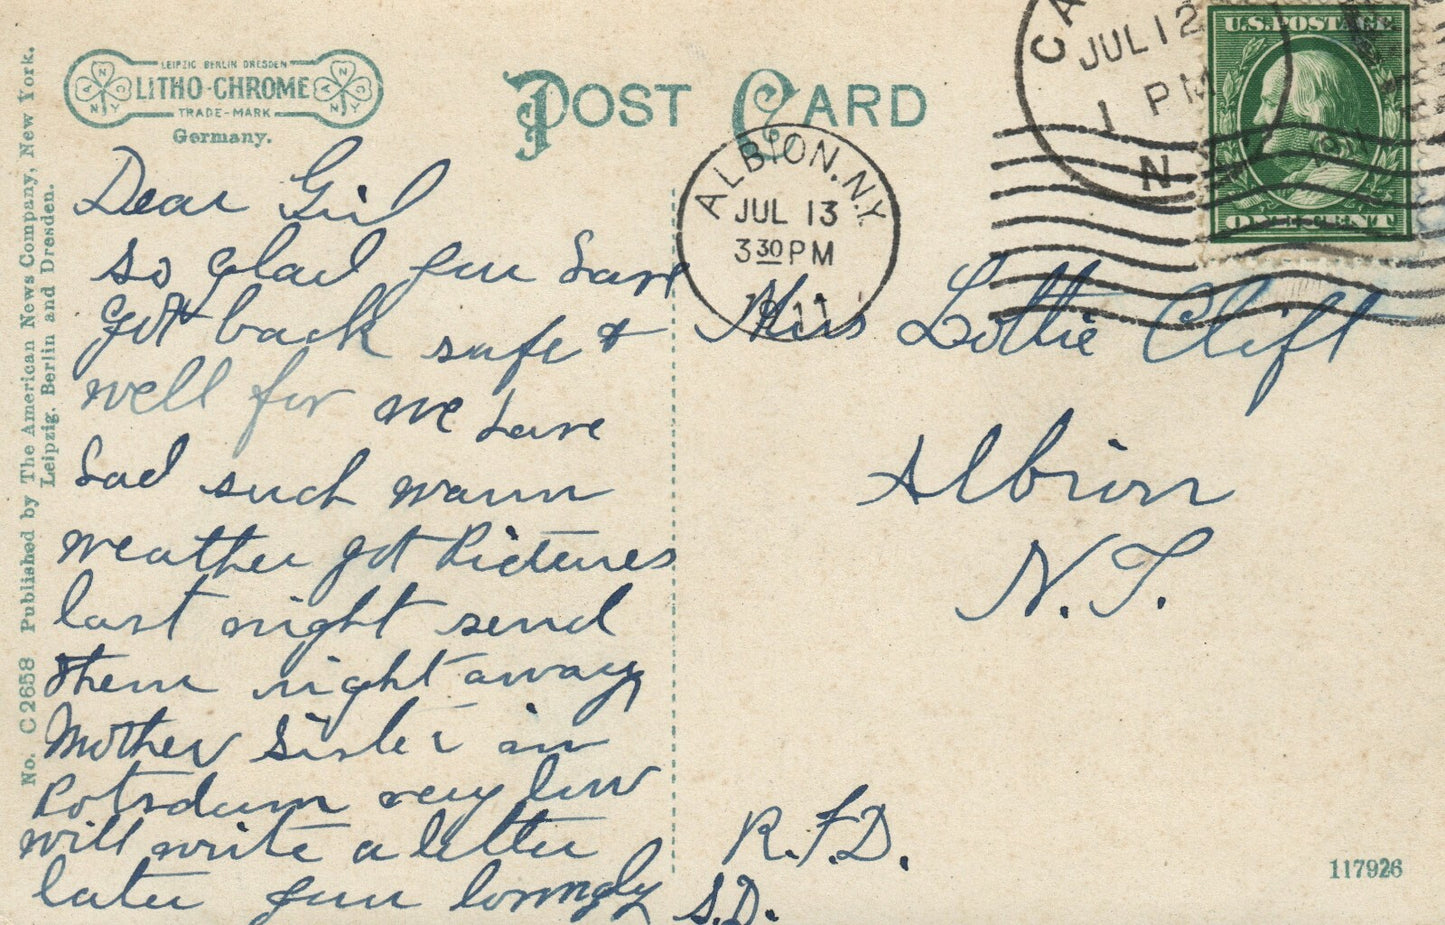 LEIPZIG BERLIN DRESDEN
LITHO-CHROME
TRADE-MARK
Germany.
POST CARD
No. C 2658 Published by The American News Company, New York.
Leipzig, Berlin and Dresden.
JUL 12
1 PM
N
U.S. POSTAGE
ONE CENT
ALBION, N.Y.
JUL 13
3 30 PM
1911
Dear Girl
So glad you have
got back safe &
well for we have
had such warm
weather got Pictures
last night send
them right away,
Mother Sister in
Potsdam very low
will write a letter
later your lovingly
S.D.
Miss Lottie Clift
Albion
N.Y.
R.F.D.
117926